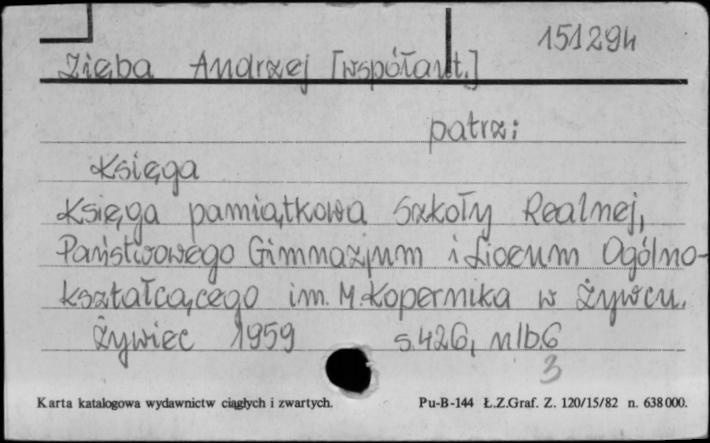 151294
Zięba Andrzej [współaut.]
patrz:
Księga
Księga pamiątkowa Szkoły Realnej,
Państwowego Gimnazjum i Liceum Ogólno-
kształcącego im. M. Kopernika w Żywcu.
Żywiec 1959 s. 426, nlb. 6
3
Karta katalogowa wydawnictw ciągłych i zwartych. Pu-B-144 Ł.Z.Graf. Z. 120/15/82 n. 638 000.